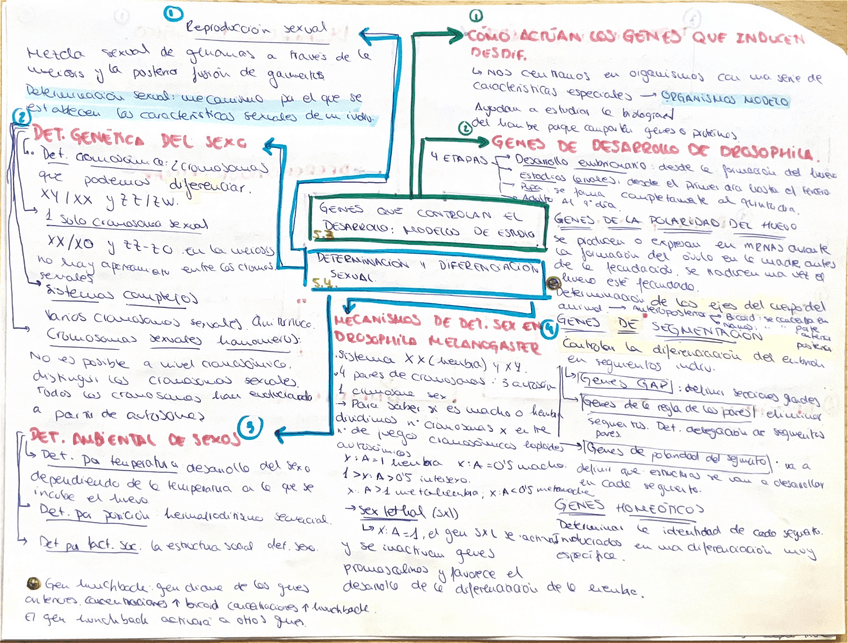 ① Reproducción sexual
Mezcla sexual de genomas a través de la
meiosis y la posterior fusión de gametos
Determinación sexual: mecanismo por el que se
establecen los características sexuales de un indiv.
② DET. GENÉTICA DEL SEXO
Det. cromosómica: ¿cromosomas
que podemos diferenciar.
XY/XX y ZZ/ZW.
1 solo cromosoma sexual
XX/XO y ZZ-ZO en la meiosis
no hay apareamiento entre los cromos.
sexuales
Sistemas complejos
Varios cromosomas sexuales.
Cromosomas sexuales homomorfos:
No es posible a nivel cromosómico
distinguir los cromosomas sexuales.
Todos los cromosomas han evolucionado
a partir de autosomas
DET. AMBIENTAL DE SEXOS ③
Det. por temperatura desarrollo del sexo
dependiendo de la temperatura a la que se
incube el huevo
Det. por posición: hermafroditismo secuencial.
Det por fact. soc: la estructura social det. sexo.
Gen hunchback: gen diana de los genes
anteriores. concentraciones ↑ bicoid concentraciones ↑ hunchback.
El gen hunchback activará a otros genes
GENES QUE CONTROLAN EL
DESARROLLO: MODELOS DE ESTUDIO
5.3
DETERMINACIÓN Y DIFERENCIACIÓN
SEXUAL
5.4
MECANISMOS DE DET. SEX EN ④
DROSOPHILA MELANOGASTER
Sistema XX (hembra) y XY.
4 pares de cromosomas: 3 autosom
1 cromosoma sex.
→ Para saber si es macho o hembra
dividimos nº cromosomas X entre
nº de juego cromosómicos haploides
autosómicos
X:A=1 hembra X:A=0'5 macho.
1>X:A>0'5 intersexo.
X:A>1 metahembra, X:A<0'5 metamacho
→ sex lethal (sxl)
X:A=1, el gen SXL se activa
y se inactivan genes
promasculinos y favorece el
desarrollo de la diferenciación de la hembra.
① CÓMO ACTÚAN LOS GENES QUE INDUCEN
DESDIF.
↳ Nos centramos en organismos con una serie de
características especiales → ORGANISMOS MODELO
Ayudan a estudiar la biología
del hombre porque comparten genes o proteínas
② GENES DE DESARROLLO DE DROSOPHILA.
4 ETAPAS → Desarrollo embrionario: desde la formación del huevo
Estadios larvales: desde el primer día hasta el tercero
Pupa: se forma completamente al quinto día.
Adulto Al 9º día
GENES DE LA POLARIDAD DEL HUEVO
se producen o expresan en MENAS durante
la formación del óvulo en la madre antes
de la fecundación, se traducen una vez el
huevo esté fecundado.
Determinación de los ejes del cuerpo del
animal → anteroposterior Bicoid: se concentra en parte anterior
Nanos: " " parte posterior
GENES DE SEGMENTACIÓN
Controlan la diferenciación del embrión
en segmentos indiv.
Genes GAP: definir secciones grandes
Genes de la regla de los pares: eliminar
segmentos. Det. delegación de segmentos
pares.
Genes de polaridad del segmento: va a
definir que estructuras se van a desarrollar
en cada segmento.
GENES HOMEÓTICOS
Determinar la identidad de cada segmento.
Involucrados en una diferenciación muy
específica.